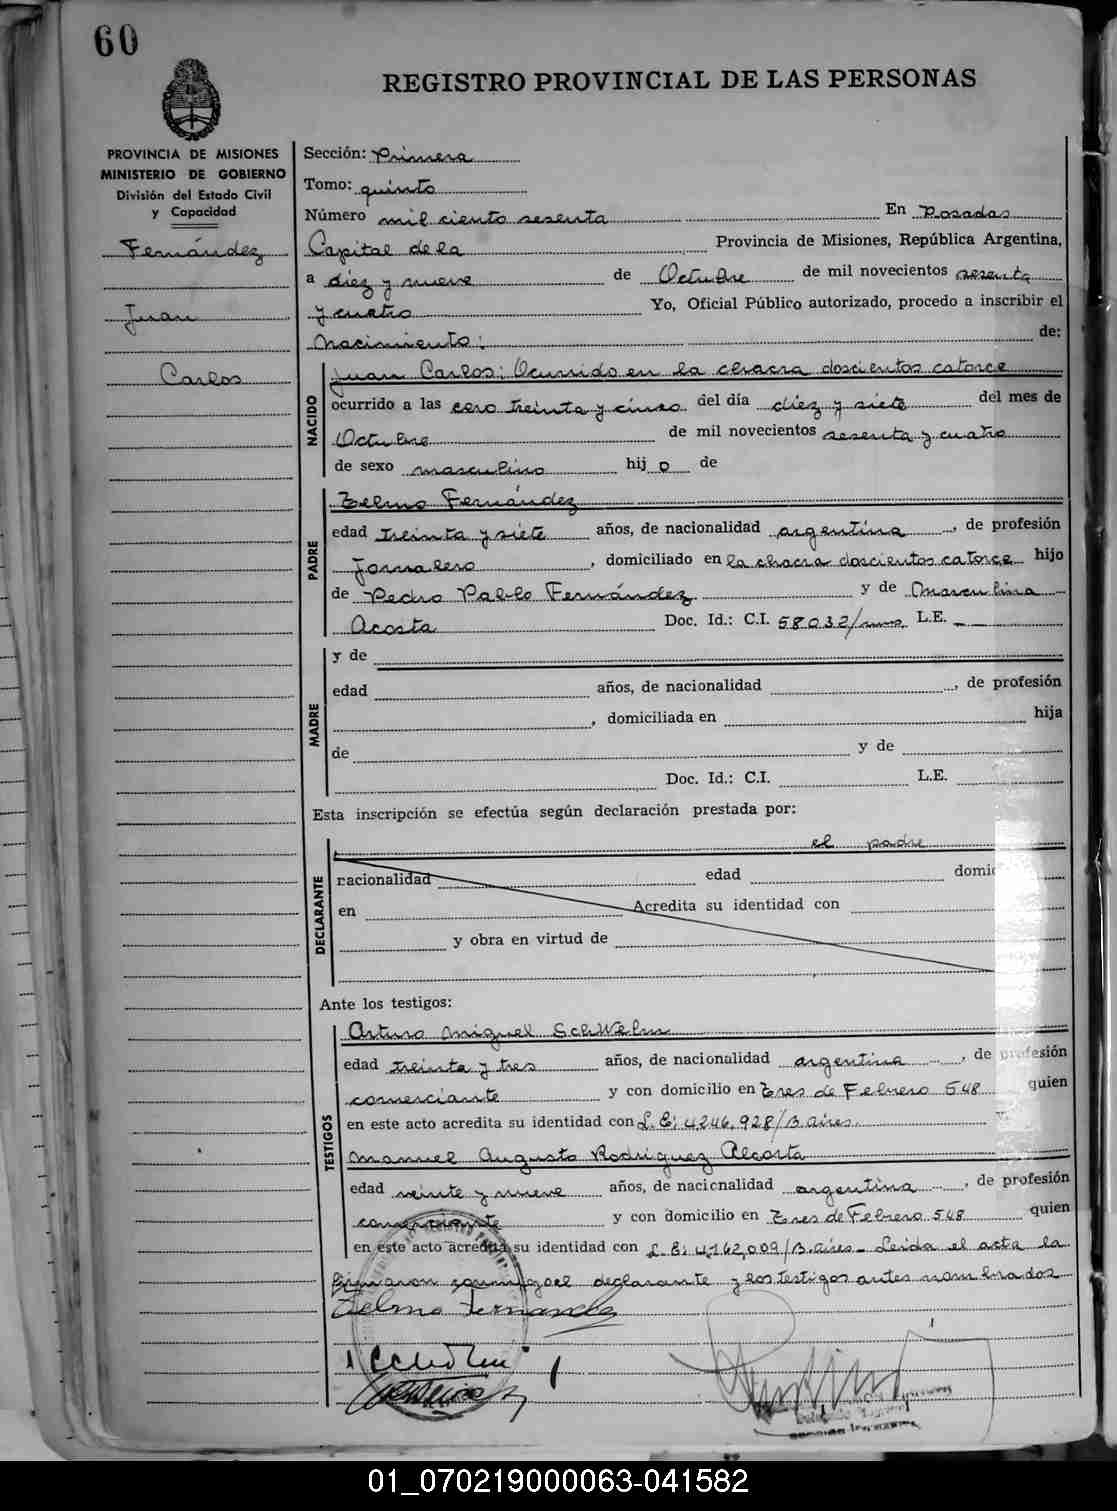 60
REGISTRO PROVINCIAL DE LAS PERSONAS
PROVINCIA DE MISIONES
MINISTERIO DE GOBIERNO
División del Estado Civil
y Capacidad
Fernández
Juan
Carlos
Sección: Primera
Tomo: quinto
Número mil ciento sesenta En Posadas
Capital de la Provincia de Misiones, República Argentina,
a diez y nueve de Octubre de mil novecientos sesenta
y cuatro Yo, Oficial Público autorizado, procedo a inscribir el
Nacimiento: de:
NACIDO
Juan Carlos: Ocurrido en la chacra doscientos catorce
ocurrido a las cero treinta y cinco del día diez y siete del mes de
Octubre de mil novecientos sesenta y cuatro
de sexo masculino hij o de
PADRE
Telmo Fernández
edad treinta y siete años, de nacionalidad argentina, de profesión
Jornalero, domiciliado en la chacra doscientos catorce hijo
de Pedro Pablo Fernández y de Marculina
Acosta Doc. Id.: C.I. 58032/ L.E. _ _
MADRE
y de
edad años, de nacionalidad, de profesión
, domiciliada en hija
de y de
Doc. Id.: C.I. L.E.
Esta inscripción se efectúa según declaración prestada por:
DECLARANTE
el padre
nacionalidad edad domic
en Acredita su identidad con
y obra en virtud de
Ante los testigos:
TESTIGOS
Arturo Miguel Schwelm
edad treinta y tres años, de nacionalidad argentina, de profesión
comerciante y con domicilio en Tres de Febrero 548 quien
en este acto acredita su identidad con L.E: 4.246.928/B. aires.
Manuel Augusto Rodriguez Alcorta
edad veinte y nueve años, de nacionalidad argentina, de profesión
comerciante y con domicilio en Tres de Febrero 548 quien
en este acto acredita su identidad con L.E: 4.162,009/B. aires_ Leida el acta la
firmaron conmigo el declarante y los testigos antes nombrados
Telmo Fernandez
01_070219000063-041582